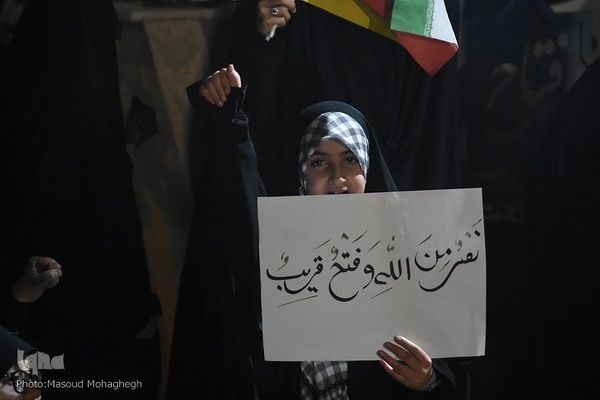 نَصْرٌ مِنَ اللّٰهِ وَ فَتْحٌ قَرِیبٌ
iqna
Photo:Masoud Mohaghegh